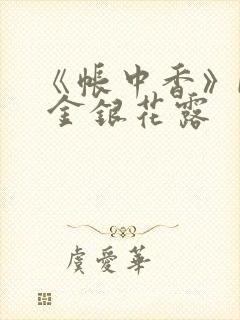 《帐中香》
金银花露
虞爱华